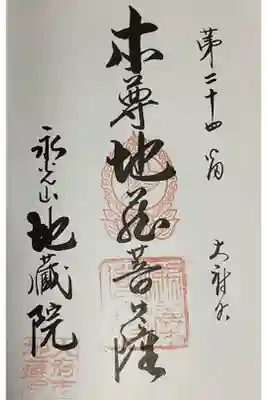 第二十四番
本尊地蔵菩薩
永光山 地蔵院